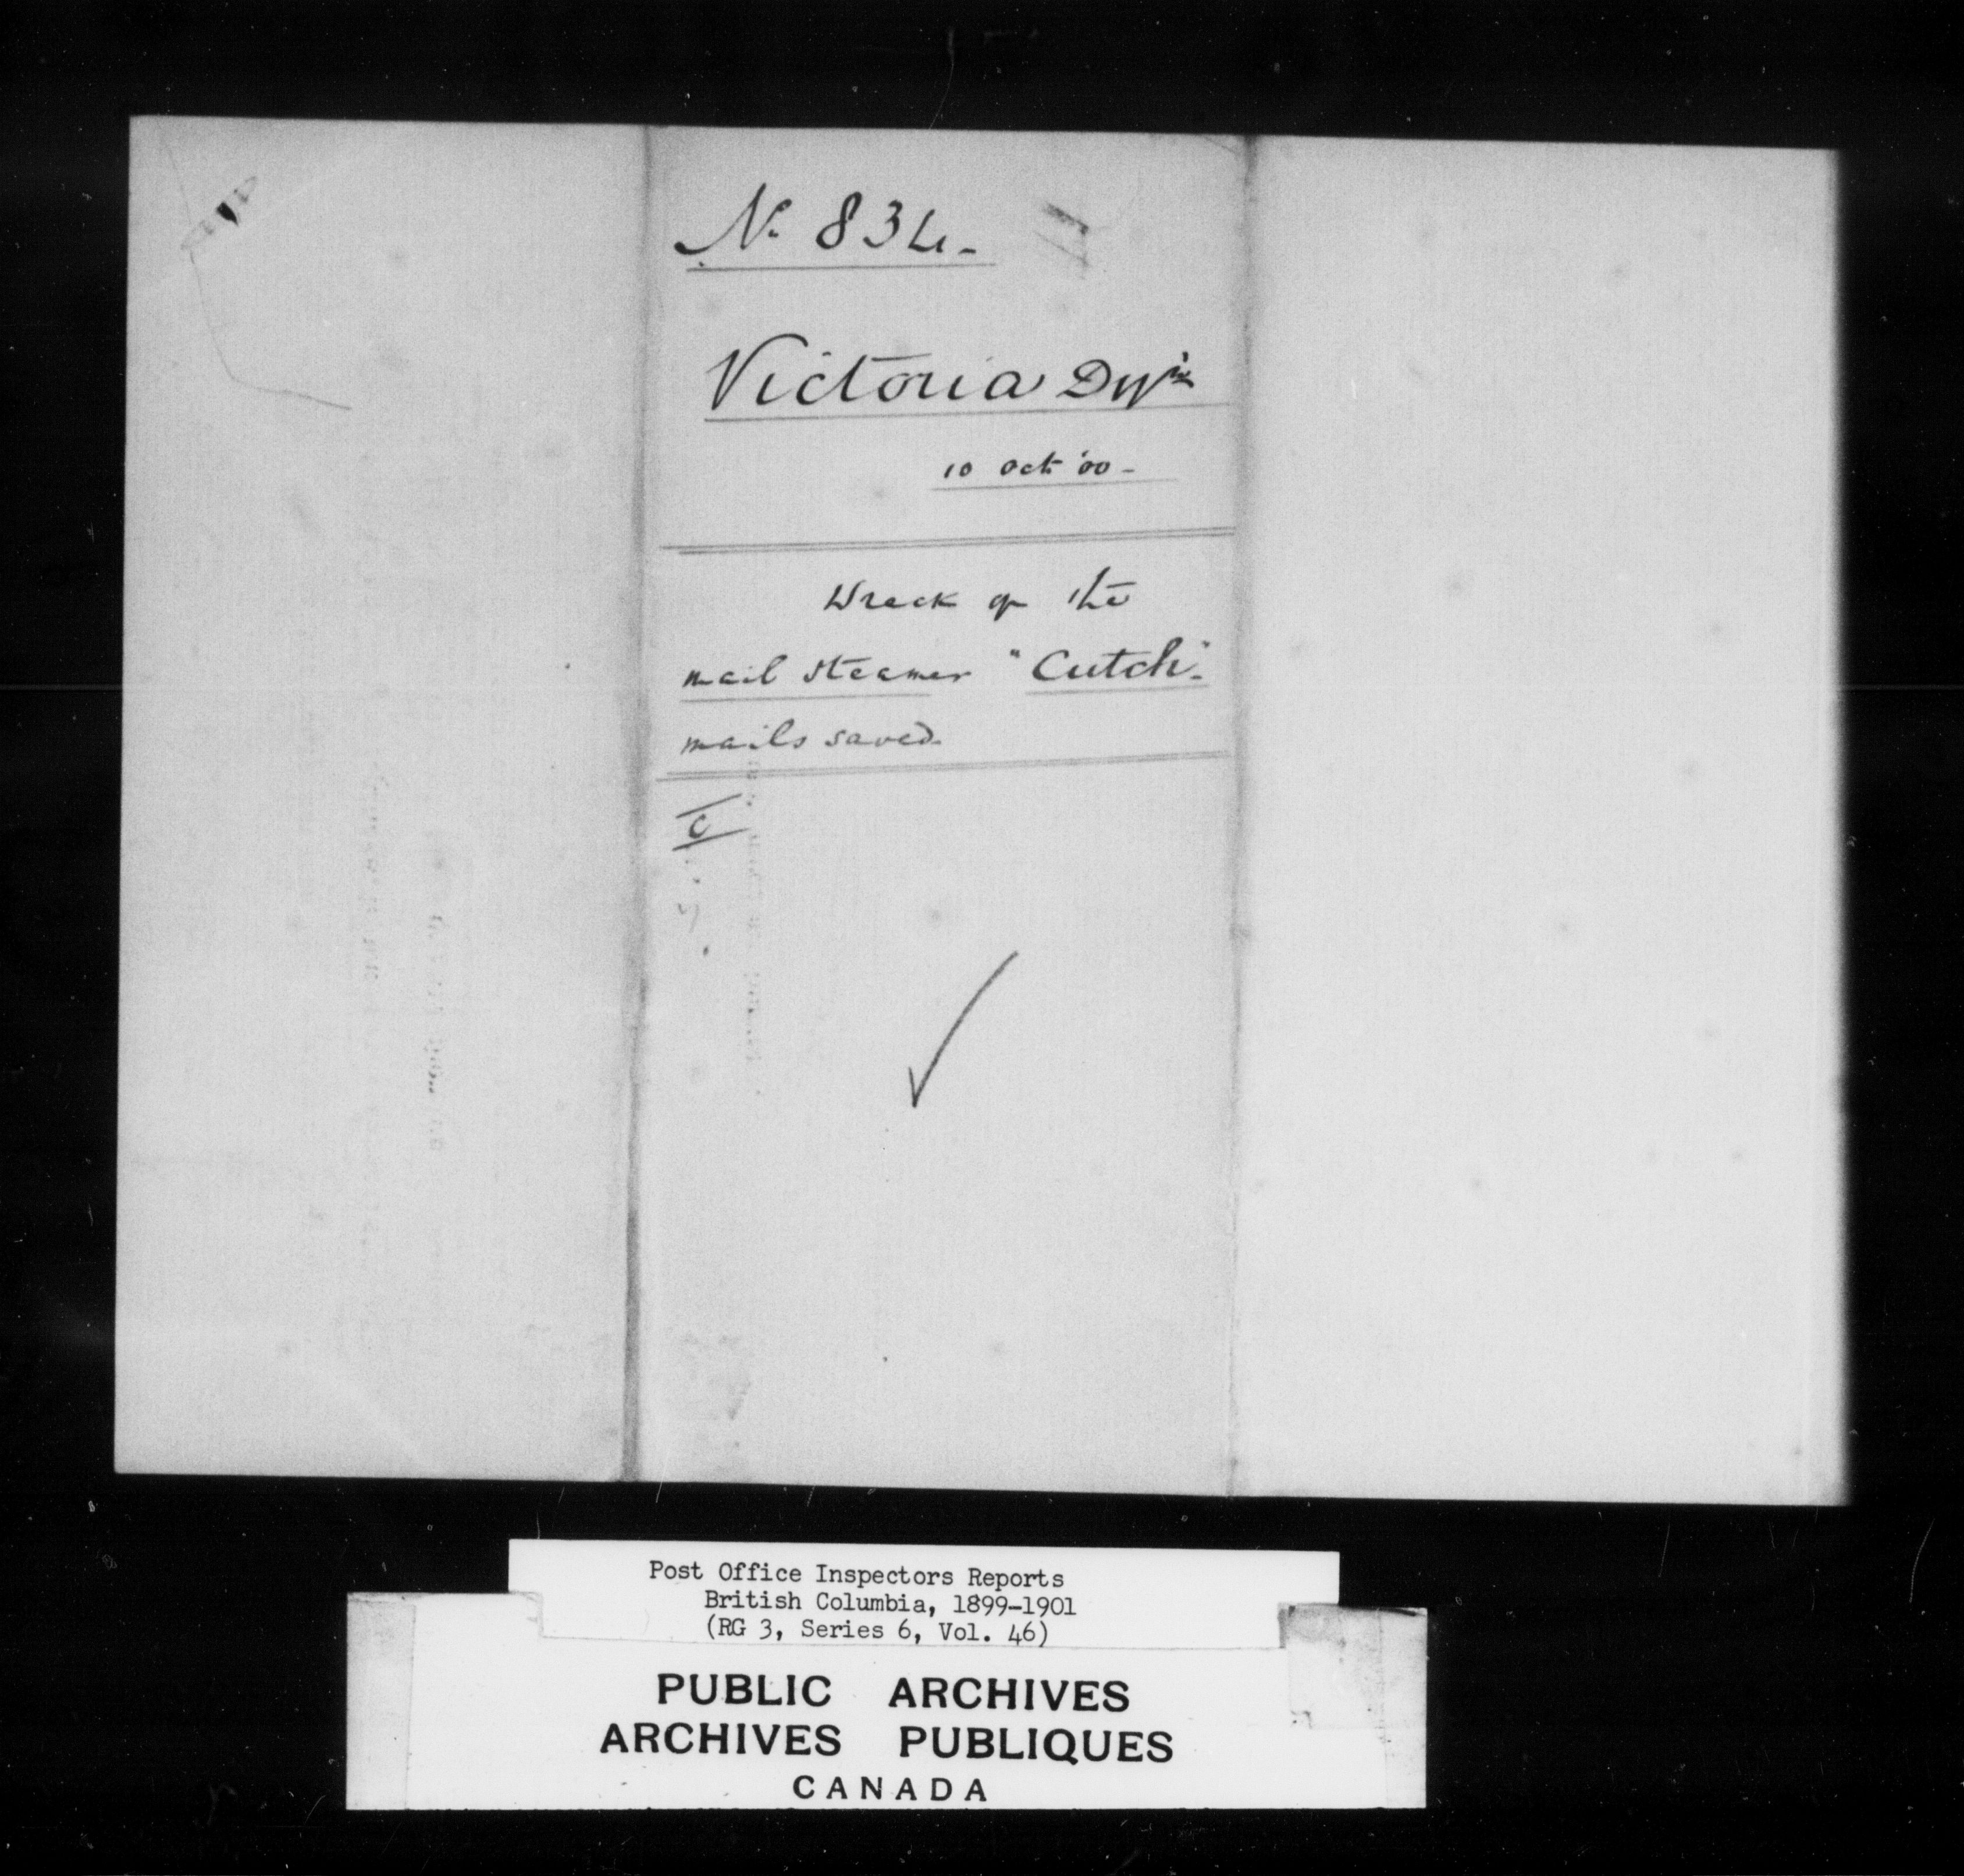 No. 834.
Victoria Dyn
10 Oct '00 -
Wreck of the
mail steamer "Cutch".
mails saved.
C
Post Office Inspectors Reports
British Columbia, 1899-1901
(RG 3, Series 6, Vol. 46)
PUBLIC ARCHIVES
ARCHIVES PUBLIQUES
CANADA